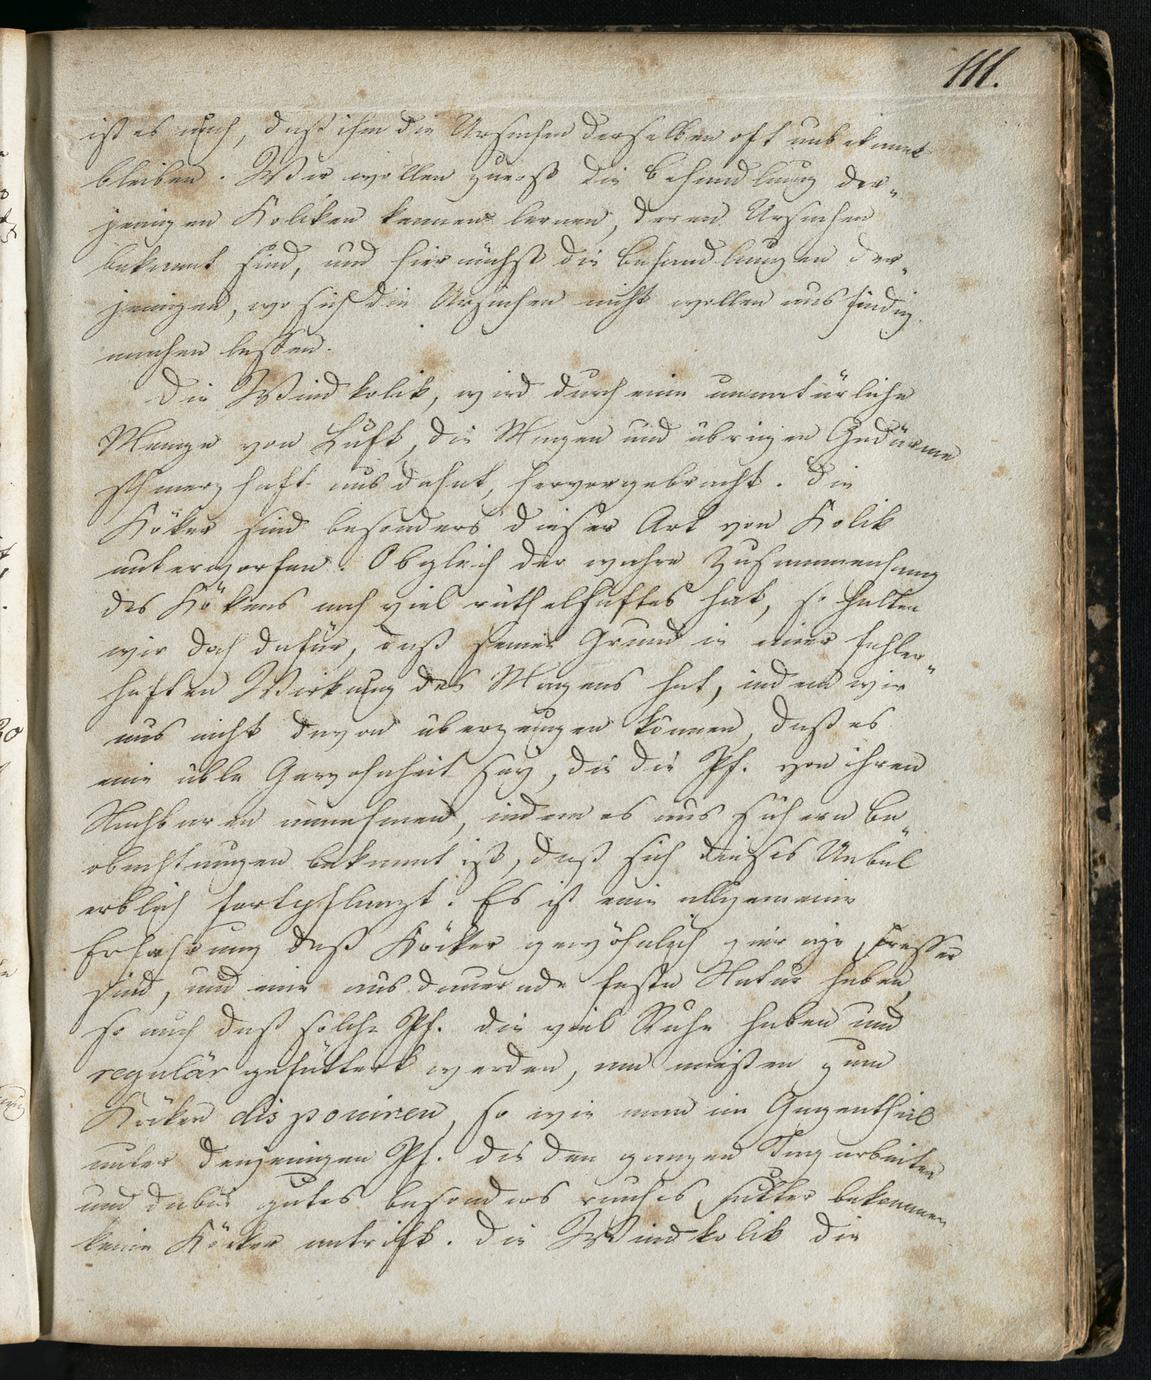 111.
ist es auch, daß ihm die Ursachen derselben oft unbekannt
bleiben. Wir wollen zuerst die Behandlung der„
jenigen Koliken kennen lernen, deren Ursachen
bekannt sind, und hiernächst die Behandlungen der„
jenigen, wo sich die Ursachen nicht wollen ausfindig
machen lassen.
Die Windkolik, wird durch eine unnatürliche
Menge von Luft, die Magen und übrigen Gedärme
schmerzhaft ausdehnt, hervorgebracht. Die
Köker sind besonders dieser Art von Kolik
unterworfen. Obgleich der wahre Zusammenhang
des Kökens noch viel räthselhaftes hat, so halten
wir doch dafür, daß seinen Grund in einer fehler„
haften Wirkung des Magens hat, indem wir
uns nicht davon überzeugen können, daß es
eine üble Gewohnheit sey, die die Pf. von ihren
Nachbaren annehmen, indem es aus sichern Be„
obachtungen bekannt ist, daß sich dieses Uebel
erblich fortpflanzt. Es ist eine allgemeine
Erfahrung daß Köcker gewöhnlich gierige Fresser
sind, und eine ausdauernde feste Natur haben,
so auch daß solche Pf. die viel Ruhe haben und
regulär gefüttert werden, am meisten zum
Köken disponiren, so wie man im Gegentheil
unter denjenigen Pf. die den ganzen Tag arbeiten
und dabei gutes besonders rauhes Futter bekommen
keine Köcker antrifft. Die Windkolik die